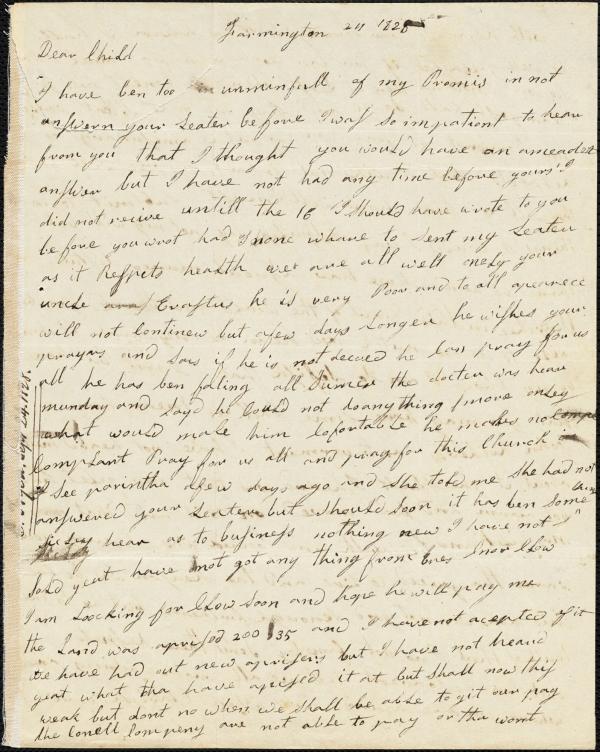 Farmington 24 1828
Dear Child
I have ben too unminfull of my Promis in not
answern your Leater before I was so impationt to hear
from you that I thought you would have an ameadet
answer but I have not had any time before yours I
did not recive untill the 16 I should have wrote to you
before you wrot had I none whare to sent my Leater
as it Respets health we are all well onely your
uncle Erastus he is very Poor and to all apearece
will not Continew but a few days Longer he wishes your
prayers and Sais if he is not decued he Can pray for us
all he has ben faling all Sumer the docter was hear
munday and Sayd he Could not do anything more onley
what would make him Cofortable he makes no
Complant Pray for us all and pray for this Church
I See parintha a few days ago and She told me She had not
answered your Leater but Should soon it has ben Some
hear as to buisness nothing new I have not
Sold yeat have not got any thing from Ives
I am Looking for Clow Soon and hope he will pay me
the Land was aprised 200 35 and I have not acepted of it
we have had out new aprisers but I have not heard
yeat what tha have aprised it at but shall now this
weak but dont no when we shall be able to git our pay
the Conell Compeny are not able to pay or tha wont